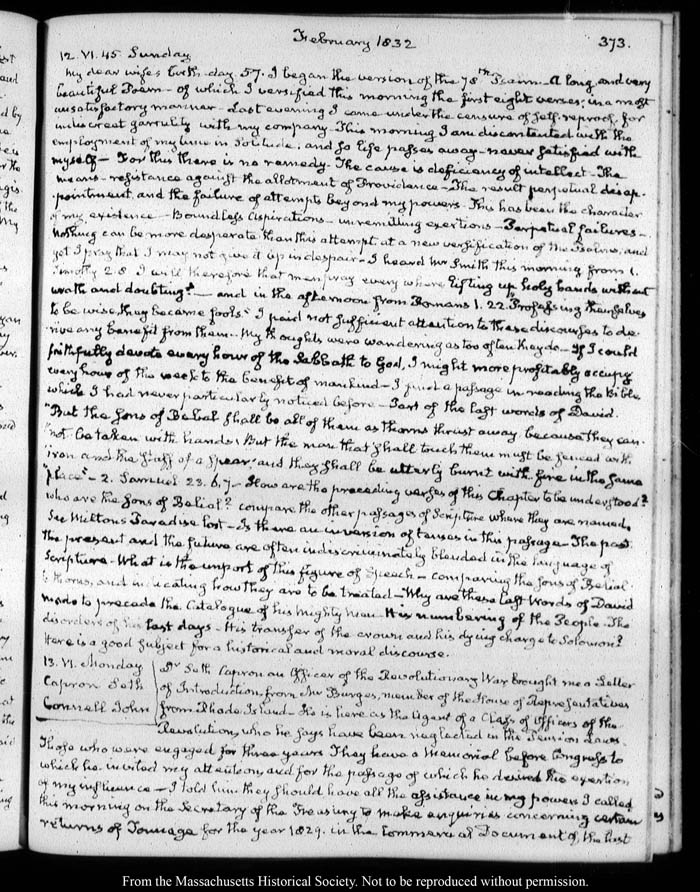 February 1832
373.
12. VI. 45. Sunday
My dear wife's birth-day. 57. I began the version of the 78th Psalm — A long, and very
beautiful Poem — of which I versified this morning the first eight verses; in a most
unsatisfactory manner — Last evening I came under the censure of self-reproch, for
indiscreet garrulity with my company — This morning I am discontented with the
employment of my time in solitude, and so life passes away — never satisfied with
myself — For this there is no remedy. The cause is deficiency of intellect — The
means — resistance against the allotment of Providence — The result perpetual disap-
pointment, and the failure of attempts beyond my powers. This has been the character
of my existence — Boundless Aspirations — unremitting exertions — Perpetual failures —
Nothing can be more desperate than this attempt at a new versification of the Psalms, and
yet I pray that I may not give it up in despair — I heard Mr Smith this morning from 1.
Timothy 2.8 I will therefore that men pray every where lifting up holy hands without
wrath and doubting" — and in the afternoon from Romans 1. 22. "Professing themselves
to be wise, they became fools" I paid not sufficient attention to these discourses to de-
rive any benefit from them. My thoughts were wandering as too often they do — If I could
faithfully devote every hour of the Sabbath to God, I might more profitably occupy
every hour of the week to the benefit of mankind — I find a passage in reading the Bible
which I had never particularly noticed before — Part of the last words of David.
"But the sons of Belial shall be all of them as thorns thrust away because they can-
"not be taken with hands: But the man that shall touch them must be fenced with
"iron and the staff of a spear; and they shall be utterly burnt with fire in the same
"place" — 2. Samuel 23. 6,7 — How are the preceding verses of this Chapter to be understood?
who are the sons of Belial? compare the other passages of Scripture where they are named,
See Miltons Paradise lost — Is there an inversion of tenses in this passage — The past
the present and the future are often indiscriminately blended in the language of
Scripture — What is the import of this figure of Speech — comparing the sons of Belial
to thorns, and indicating how they are to be treated — Why are these last words of David
made to precede the Catalogue of his mighty men — His numbering of the People — The
disorders of his last days — His transfer of the crown and his dying charge to Solomon?
Here is a good subject for a historical and moral discourse.
13. VI. Monday
Capron Seth
Connell John
Dr Seth Capron an Officer of the Revolutionary War brought me a Letter
of Introduction from Mr Burges, member of the House of Representatives
from Rhode Island. He is here as the Agent of a Class of Officers of the
Revolution, who he says have been neglected in the Pension Laws.
Those who were engaged for three years They have a Memorial before Congress to
which he invited my attention, and for the passage of which he desired the exertion
of my influence — I told him they should have all the assistance in my power. I called
this morning on the Secretary of the Treasury to make enquiries concerning certain
returns of Tonnage for the year 1829. in the Commercial Document of the last
From the Massachusetts Historical Society. Not to be reproduced without permission.